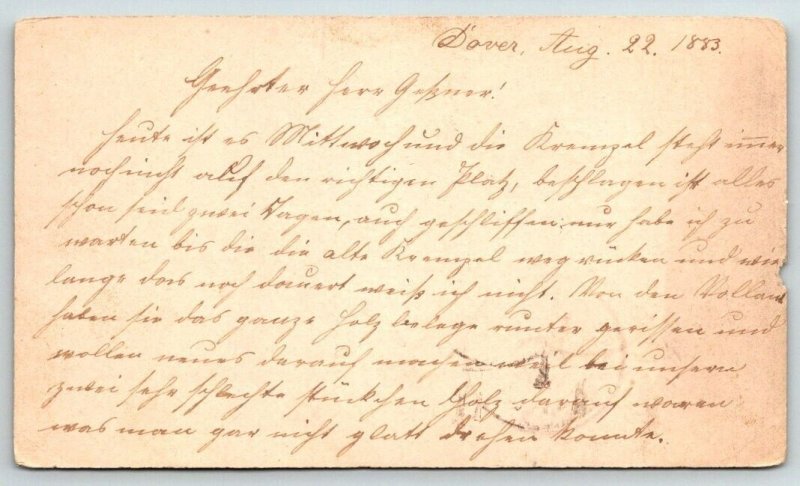 Dover, Aug. 22. 1883.
Geehrter Herr Geßner!
Heute ist es Mittwoch und die Krempel steht immer
noch nicht auf den richtigen Platz, beschlagen ist alles
schon seid zwei Tagen, auch geschliffen nur habe ich zu
warten bis die die alte Krempel weg rücken und wie
lange das noch dauert weiß ich nicht. Von den
haben sie das ganze Holz belege runter gerissen und
wollen neues darauf machen weil bei unsern
zwei sehr schlechte stückchen Holz darauf waren
was man gar nicht glatt drehen konnte.